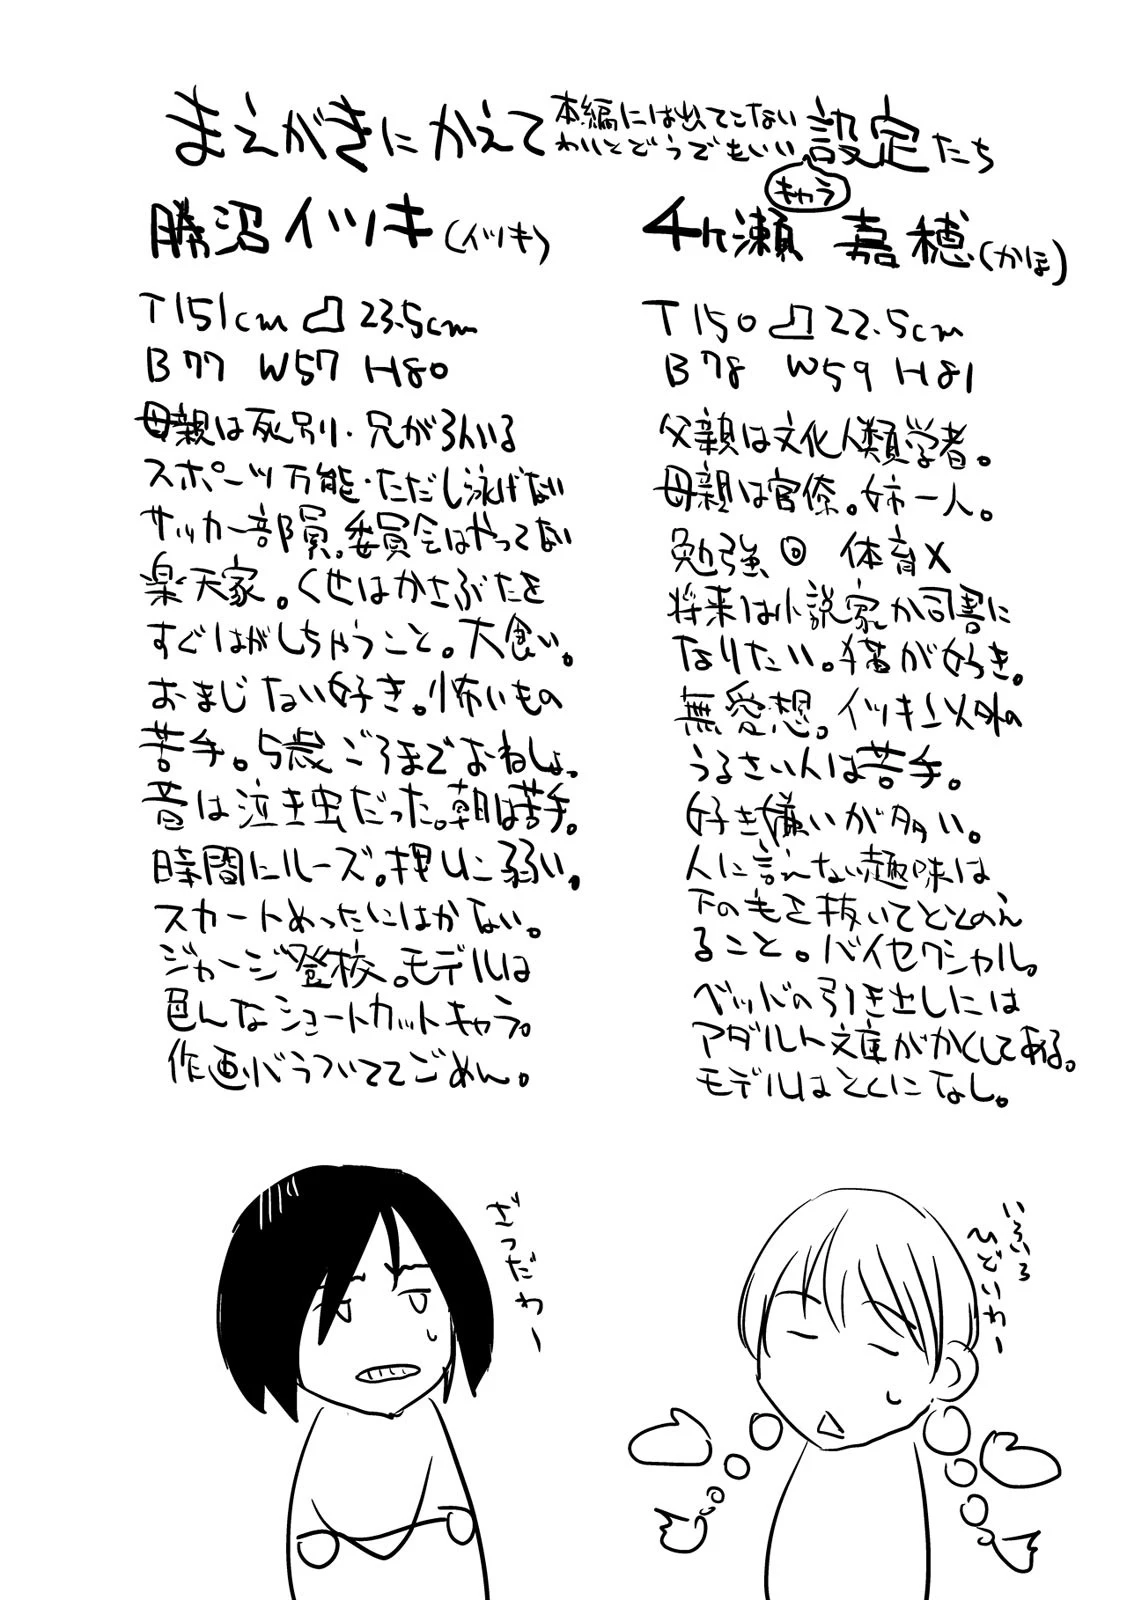 まえがきにかえて本編には出てこない
わりとどうでもいい設定たち
キャラ
勝沼イツキ(イツキ)
T151cm 23.5cm
B77 W57 H80
母親は死別・兄が3人いる
スポーツ万能・ただし泳げない
サッカー部員。委員会はやってない
楽天家。くせはかさぶたを
すぐはがしちゃうこと。大食い。
おまじない好き。怖いもの
苦手。5歳ごろまでおねしょ。
昔は泣き虫だった。朝は苦手。
時間にルーズ。押しに弱い。
スカートめったにはかない。
ジャージ登校。モデルは
色んなショートカットキャラ。
作画バラついててごめん。
千ヶ瀬 嘉穂(かほ)
T150 22.5cm
B78 W59 H81
父親は文化人類学者。
母親は官僚。姉一人。
勉強◎ 体育×
将来は小説家か司書に
なりたい。猫が好き。
無愛想。イツキ以外の
うるさい人は苦手。
好き嫌いが多い。
人に言えない趣味は
下の毛を抜いてととのえ
ること。バイセクシャル。
ベッドの引き出しには
アダルト文庫がかくしてある。
モデルはとくになし。
ざつだわー
いろいろ
ひどいわー